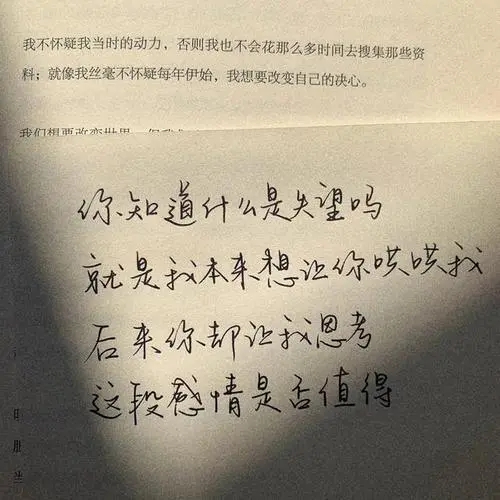 我不怀疑我当时的动力，否则我也不会花那么多时间去搜集那些资
料；就像我丝毫不怀疑每年伊始，我想要改变自己的决心。
我们想要改变世界，但我
你知道什么是失望吗
就是我本来想让你哄哄我
后来你却让我思考
这段感情是否值得